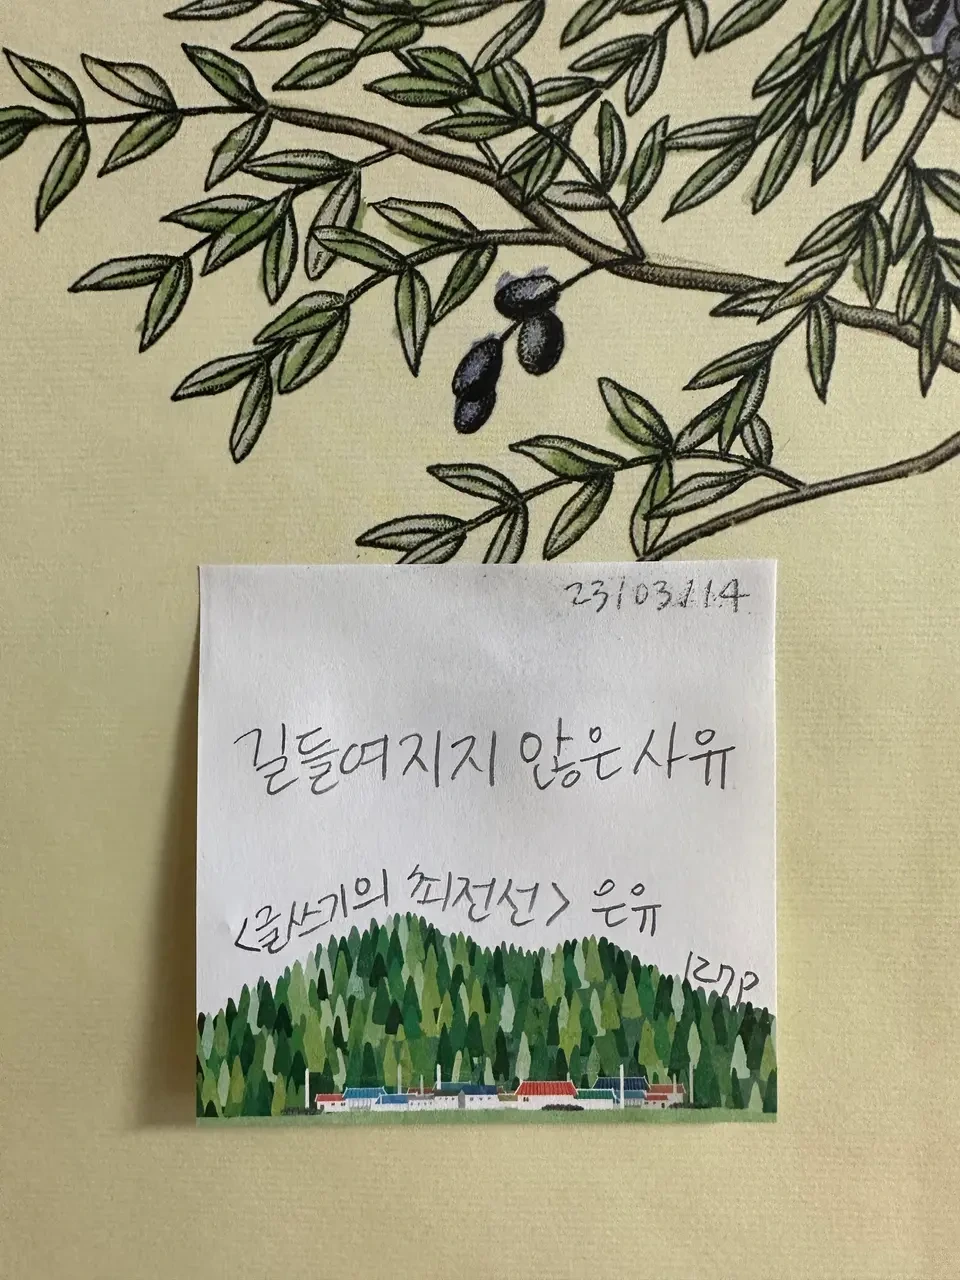 23/03/14
길들여지지 않은 사유
<글쓰기의 최전선> 은유
127p